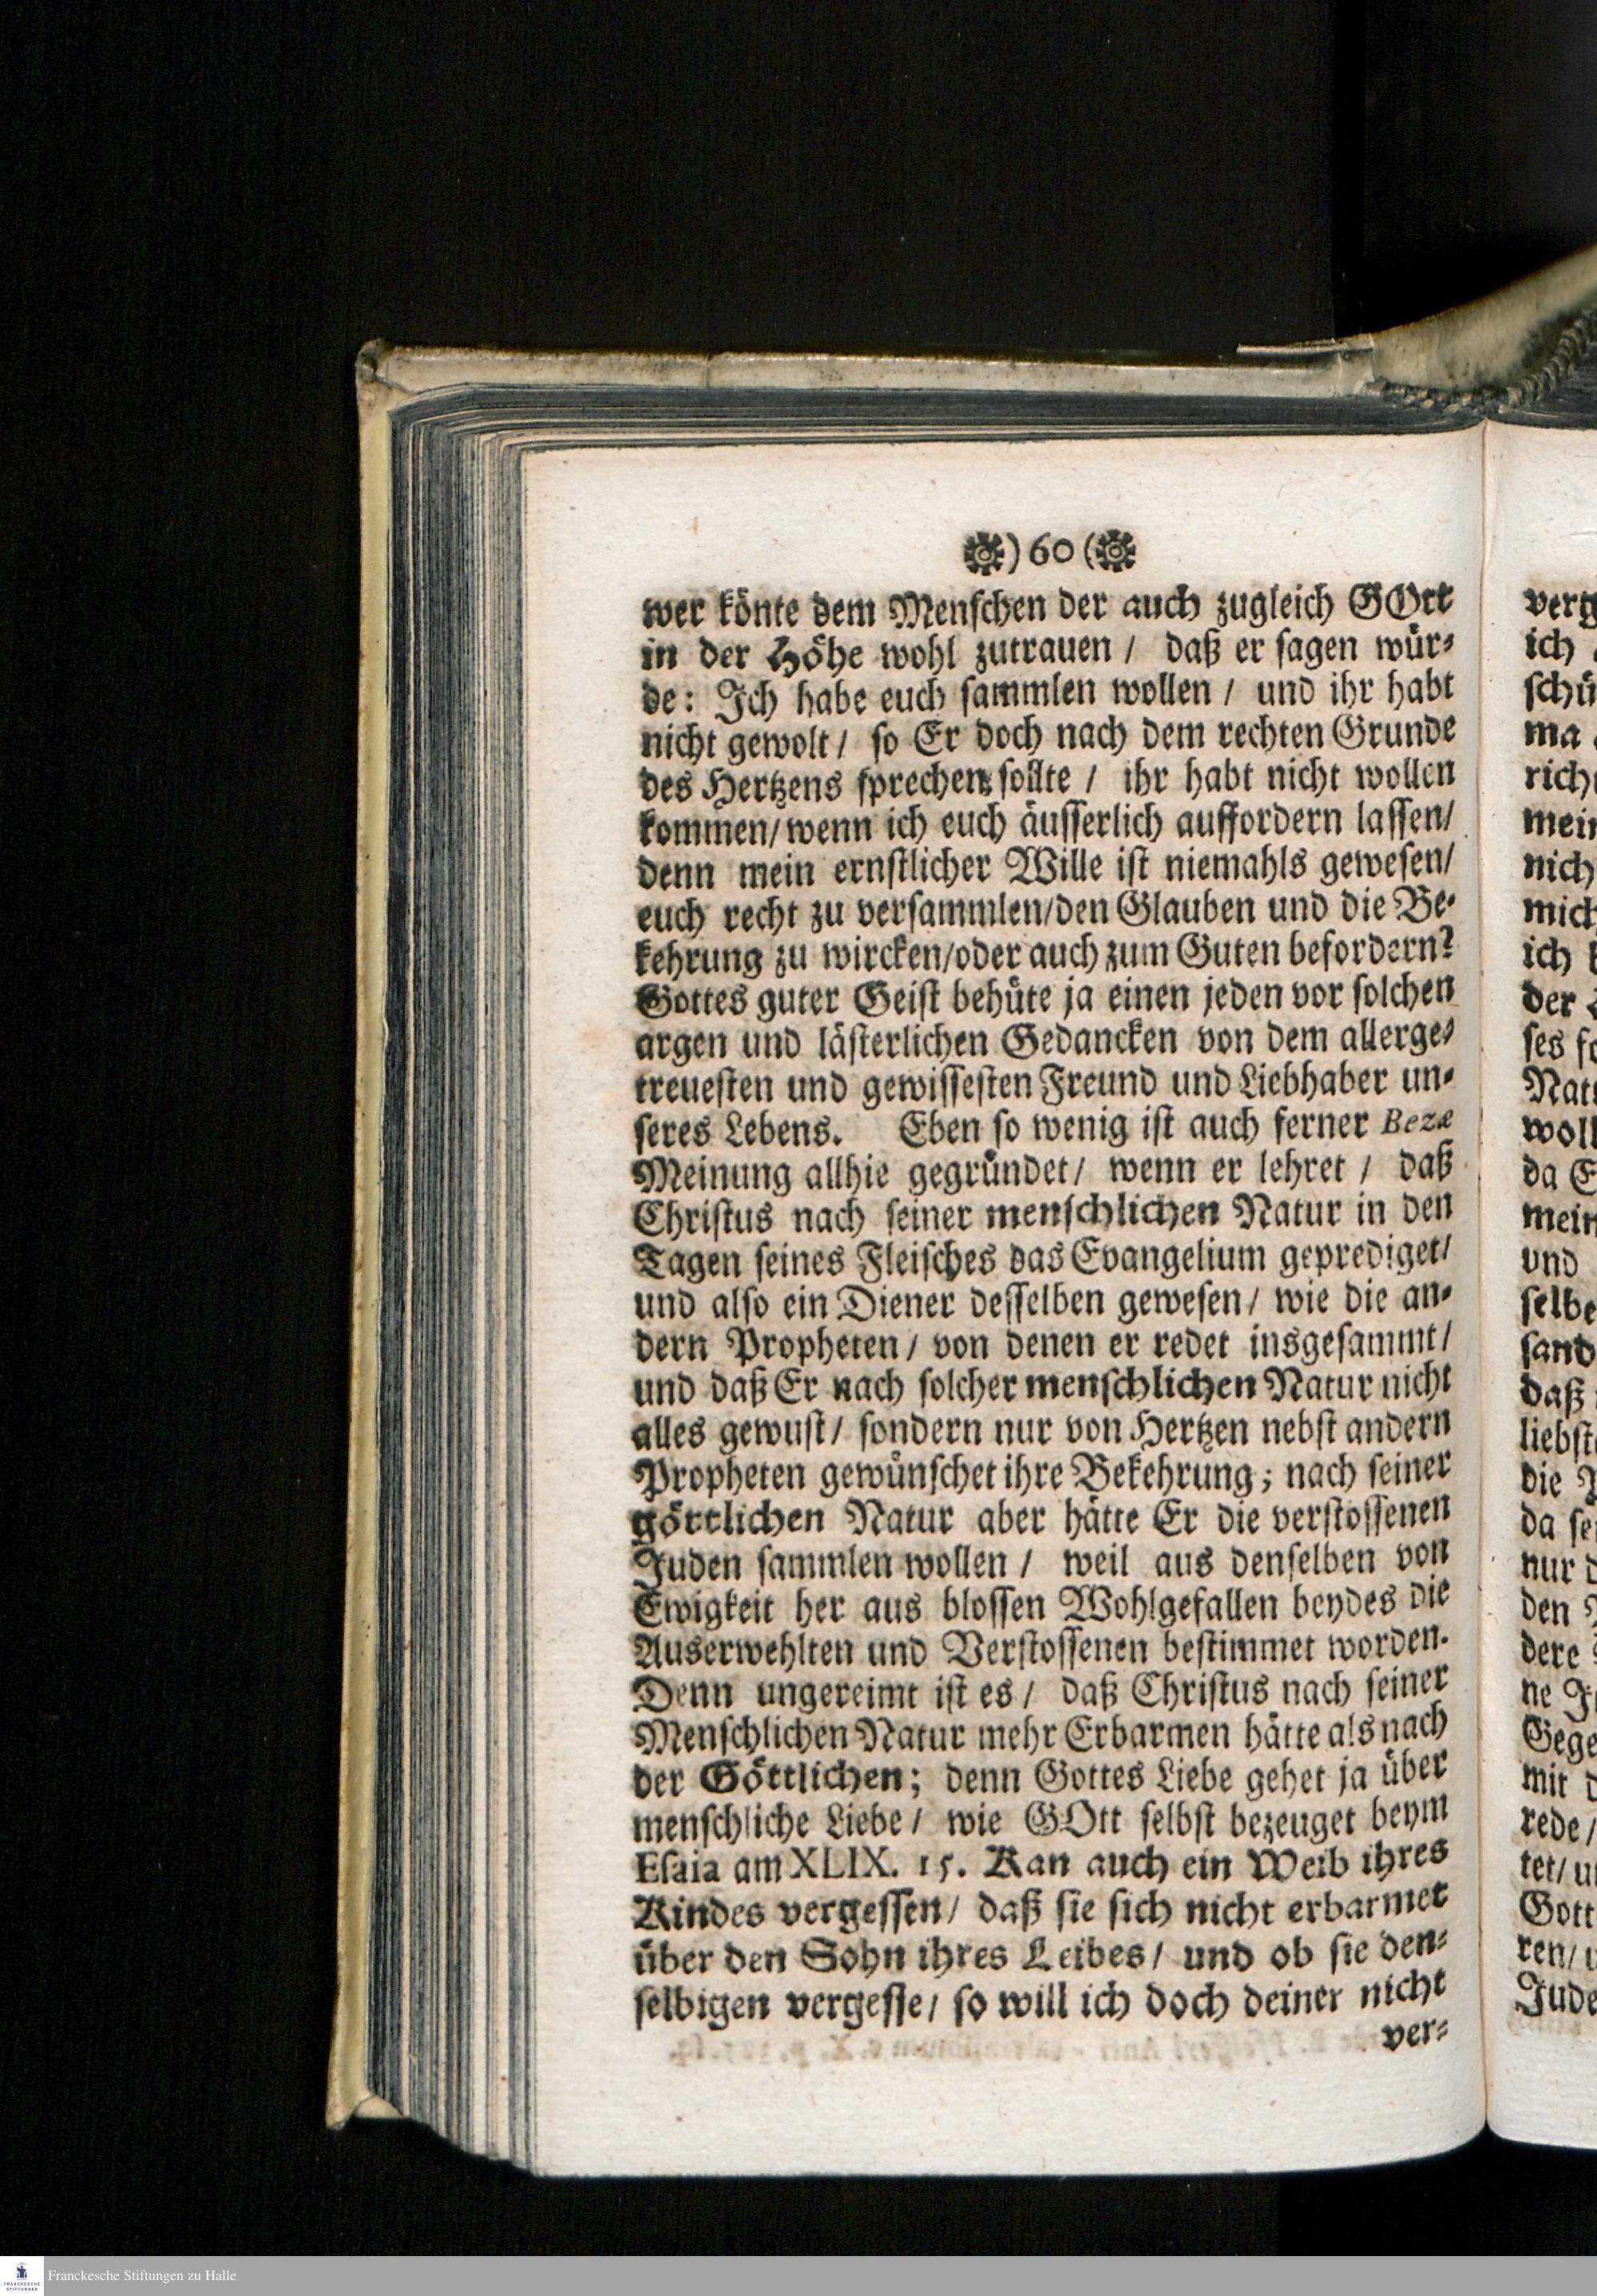 ) 60 (
wer könte dem Menschen der auch zugleich GOtt
in der Höhe wohl zutrauen / daß er sagen wür-
de: Ich habe euch sammlen wollen / und ihr habt
nicht gewolt / so Er doch nach dem rechten Grunde
des Hertzens sprechen sollte / ihr habt nicht wollen
kommen/ wenn ich euch äusserlich auffordern lassen/
denn mein ernstlicher Wille ist niemahls gewesen/
euch recht zu versammlen/den Glauben und die Be-
kehrung zu wircken/oder auch zum Guten befordern?
Gottes guter Geist behüte ja einen jeden vor solchen
argen und lästerlichen Gedancken von dem allerge-
treuesten und gewissesten Freund und Liebhaber un-
seres Lebens. Eben so wenig ist auch ferner Bezæ
Meinung allhie gegründet/ wenn er lehret / daß
Christus nach seiner menschlichen Natur in den
Tagen seines Fleisches das Evangelium geprediget/
und also ein Diener desselben gewesen / wie die an-
dern Propheten / von denen er redet insgesammt/
und daß Er nach solcher menschlichen Natur nicht
alles gewust / sondern nur von Hertzen nebst andern
Propheten gewünschet ihre Bekehrung; nach seiner
göttlichen Natur aber hätte Er die verstossenen
Juden sammlen wollen / weil aus denselben von
Ewigkeit her aus blossen Wohlgefallen beydes die
Auserwehlten und Verstossenen bestimmet worden.
Denn ungereimt ist es / daß Christus nach seiner
Menschlichen Natur mehr Erbarmen hätte als nach
der Göttlichen; denn Gottes Liebe gehet ja über
menschliche Liebe / wie GOtt selbst bezeuget beym
Esaia am XLIX. 15. Kan auch ein Weib ihres
Kindes vergessen / daß sie sich nicht erbarmet
über den Sohn ihres Leibes / und ob sie den-
selbigen vergesse / so will ich doch deiner nicht
ver-
verg
ich
schü
ma
rich
mein
nich
mich
ich
der
ses
Natu
woll
da E
mein
vnd
selbe
sand
daß
liebst
die
da se
nur
den
dere
ne
Gege
mit
rede /
tet/ u
Gott
ren/
Jude
FRANCKESCHE
STIFTUNGEN
Franckesche Stiftungen zu Halle